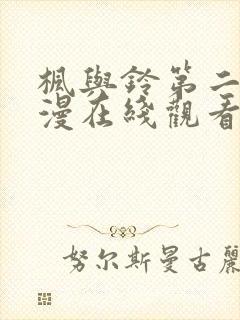 楓與鈴第二
漫在綫觀看
努尔斯曼古麗